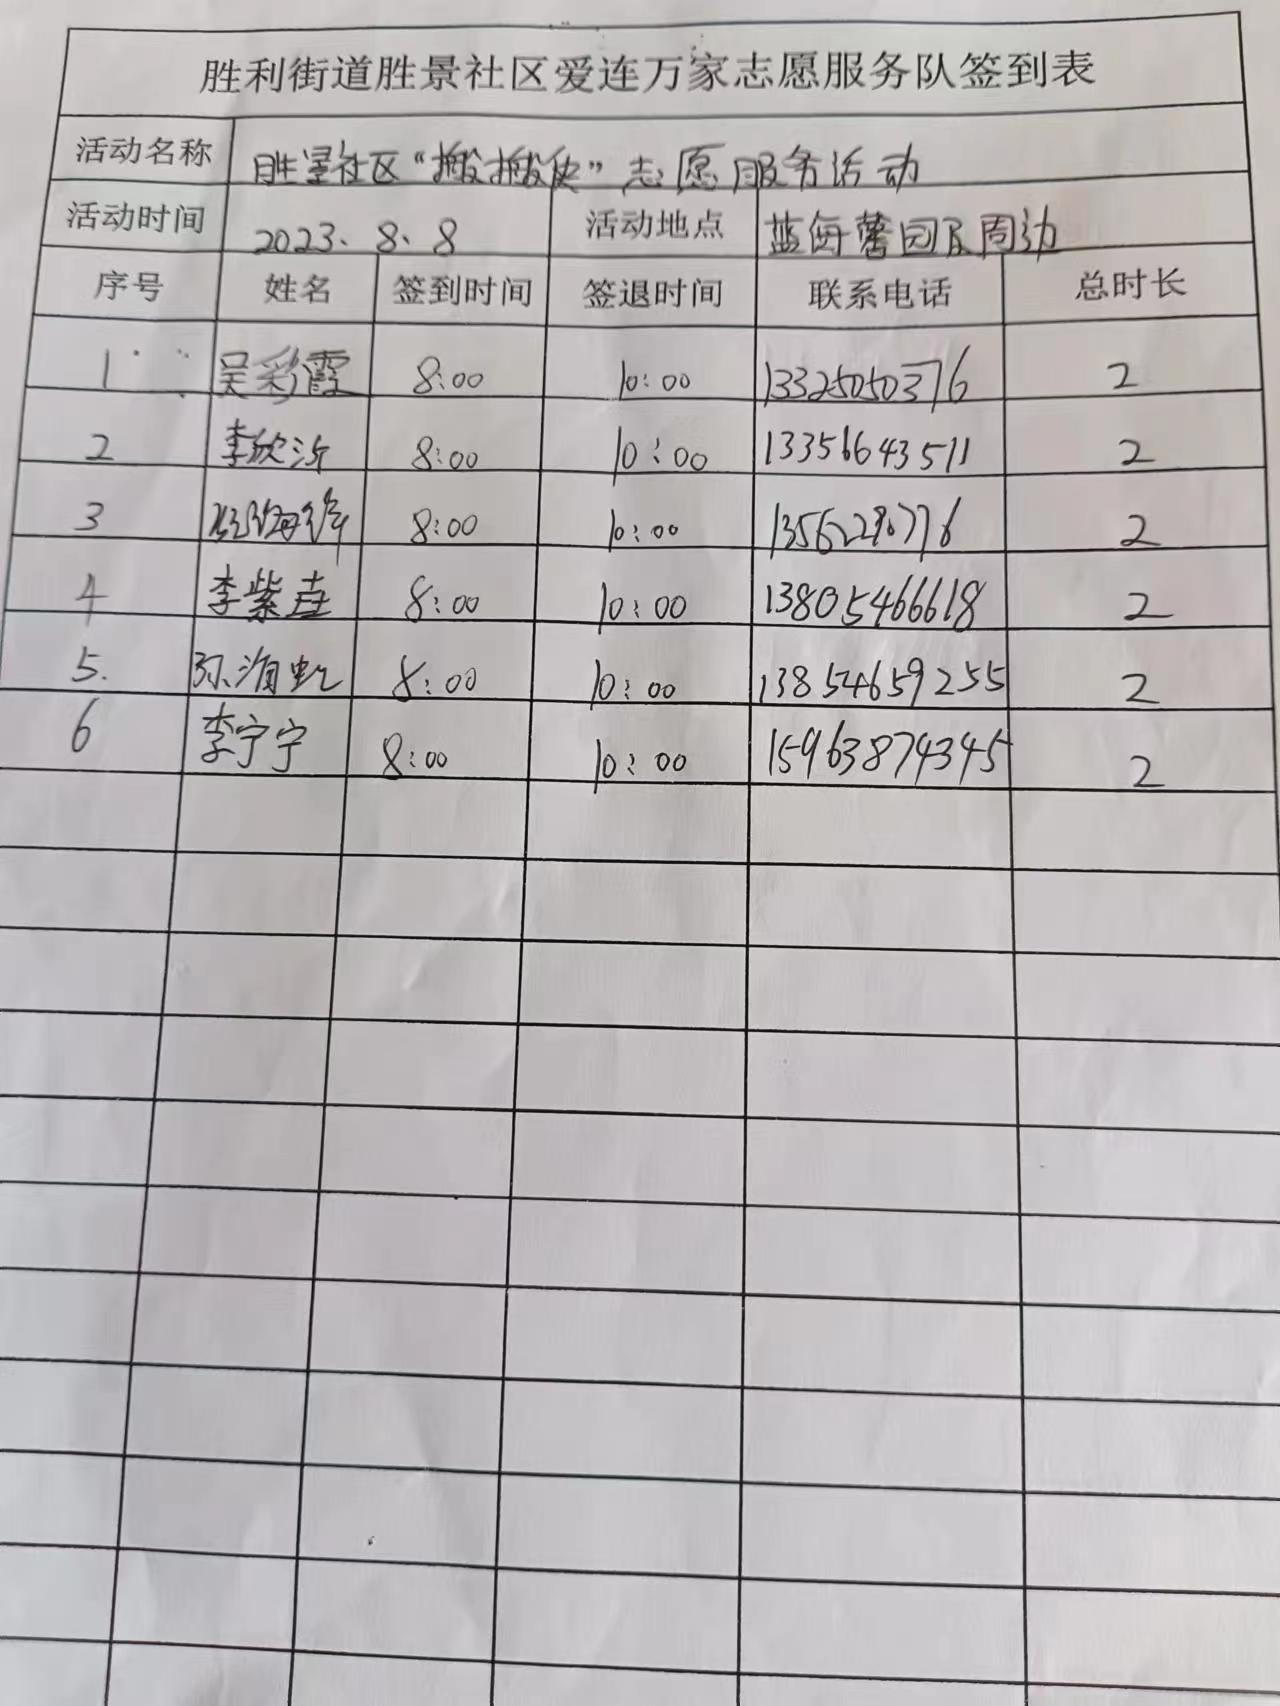 胜利街道胜景社区爱连万家志愿服务队签到表
活动名称 胜景社区“搬搬侠”志愿服务活动
活动时间 2023、8、8 活动地点 蓝海馨园及周边
序号 姓名 签到时间 签退时间 联系电话 总时长
1 吴彩霞 8:00 10:00 13325050376 2
2 李欣沂 8:00 10:00 13356643511 2
3 8:00 10:00 2
4 李紫 8:00 10:00 13805466618 2
5. 8:00 10:00 13854659255 2
6 李宁宁 8:00 10:00 15963874345 2